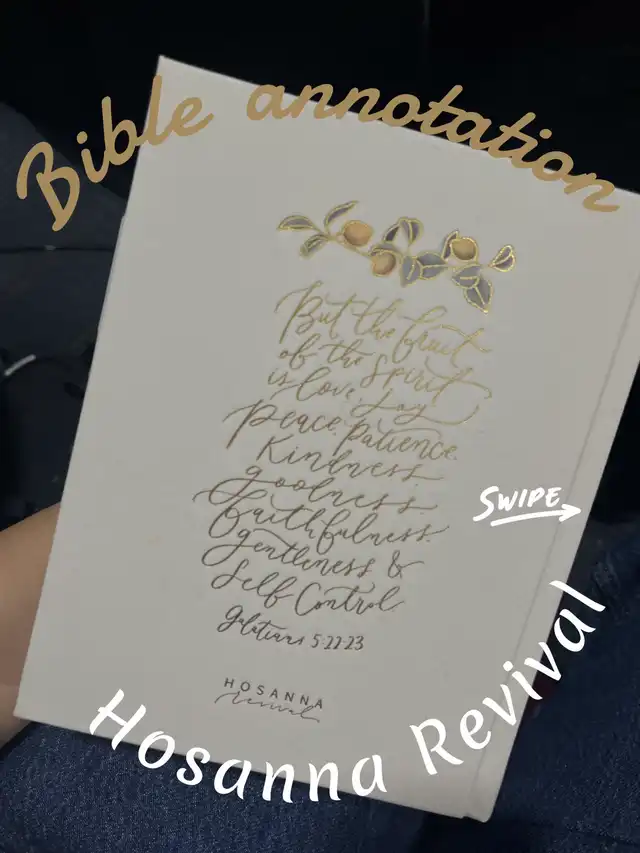 Bible annotation
But the fruit
of the Spirit
is love, Joy
Peace, Patience.
Kindness.
goodness.
Faithfulness.
gentleness &
Self Control
Galatians 5:22-23
HOSANNA
Revival
SWIPE
Hosanna Revival